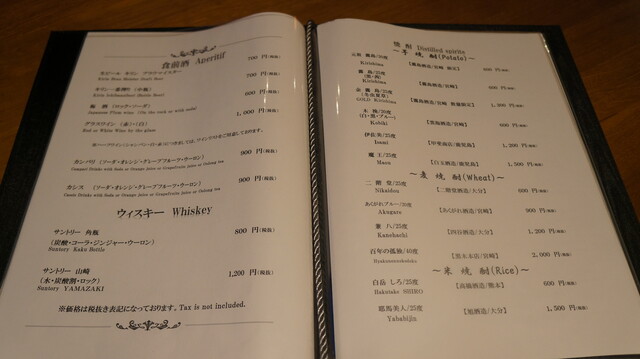 食前酒 Aperitif
生ビール キリン ブラウマイスター 700 円(税抜)
Kirin Beer Meister Draft Beer
キリン一番搾り(中瓶) 700 円(税抜)
Kirin Ichibanshibori (Bottle Beer)
梅酒 (ロック・ソーダ) 600 円(税抜)
Japanese Plum wine (On the rock or with soda)
グラスワイン (赤)・(白) 1,000 円(税抜)
Red or White Wine by the glass
カンパリ (ソーダ・オレンジ・グレープフルーツ・ウーロン) 900 円(税抜)
Campari Drinks with Soda or Orange Juice or Grapefruit Juice or Oolong tea
カシス (ソーダ・オレンジ・グレープフルーツ・ウーロン) 900 円(税抜)
Cassis Drinks with Soda or Orange Juice or Grapefruit Juice or Oolong tea
ウィスキー Whiskey
サントリー 角瓶 800 円(税抜)
(炭酸・コーラ・ジンジャー・ウーロン)
Suntory Kaku Bottle
サントリー 山崎 1,200 円(税抜)
(水・炭酸割・ロック)
Suntory YAMAZAKI
※価格は税抜き表記になっております。Tax is not included.
焼酎 Distilled spirits
~芋焼酎(Potato)~
霧島/25度 【霧島酒造/宮崎 限定】 600 円(税抜)
Kirishima
霧島/25度
(黒・茜) 【霧島酒造/宮崎】 600 円(税抜)
Kirishima
【霧島酒造/宮崎 数量限定】 1,300 円(税抜)
(GOLD) Kirishima
(白・黒・ブルー) 600 円(税抜)
Kohiki
伊佐美/25度 【甲斐商店/鹿児島】 1,200 円(税抜)
Isami
魔王/25度 【白玉酒造/鹿児島】 1,500 円(税抜)
Maou
~麦焼酎(Wheat)~
二階堂/25度 【二階堂酒造/大分】 600 円(税抜)
Nikaidou
あくがれブルー/25度 【あくがれ酒造/宮崎】 900 円(税抜)
Akugare
兼八/25度 【四谷酒造/大分】 1,200 円(税抜)
Kanehachi
百年の孤独/40度 【黒木本店/宮崎】 2,000 円(税抜)
Hyakunennokodoku
~米焼酎(Rice)~
白岳 しろ/25度 【高橋酒造/熊本】 600 円(税抜)
Hakutake SHIRO
耶馬美人/25度 【旭酒造/大分】 1,500 円(税抜)
Yababijin